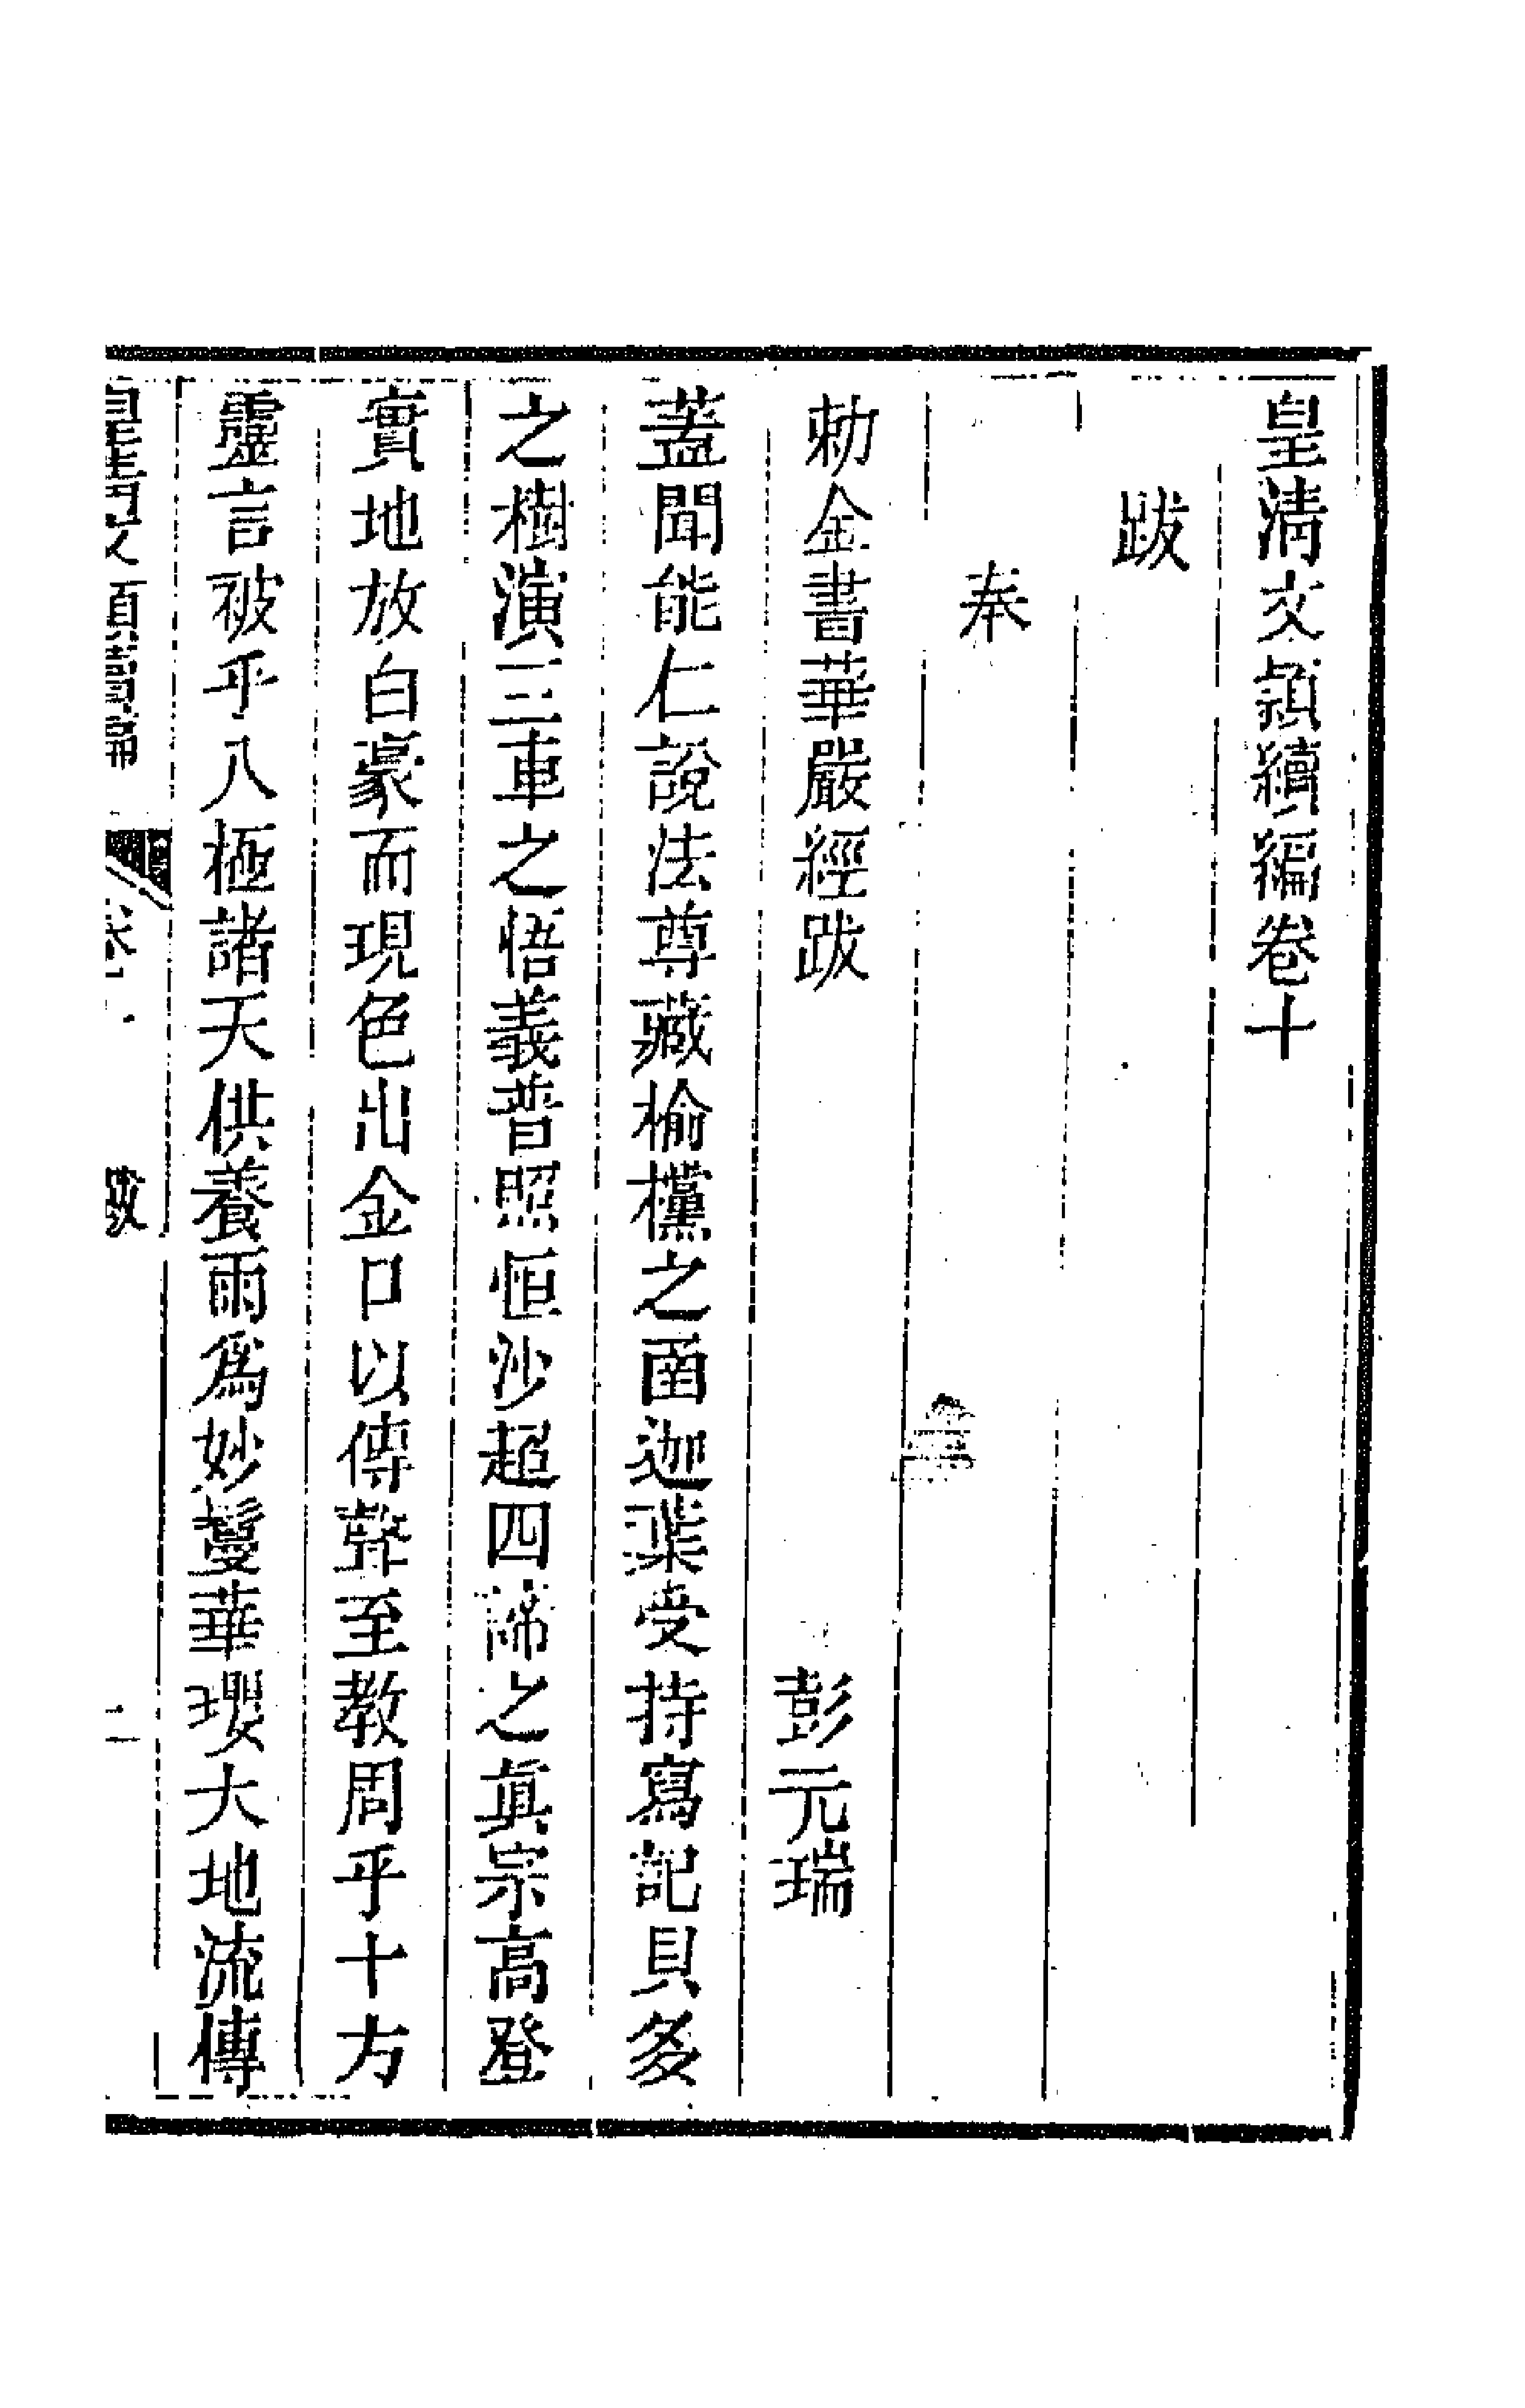 皇清文穎續編卷十
跋
奉
勅金書華嚴經跋 彭元瑞
蓋聞能仁說法尊藏榆欓之函迦葉受持寫記貝多
之樹演三車之悟義普照恒沙超四諦之眞宗高登
實地放白豪而現色出金口以傳聲至教周乎十方
靈言被乎八極諸天供養雨爲妙鬘華瓔大地流傳
皇清文穎續編 卷十 跋 二